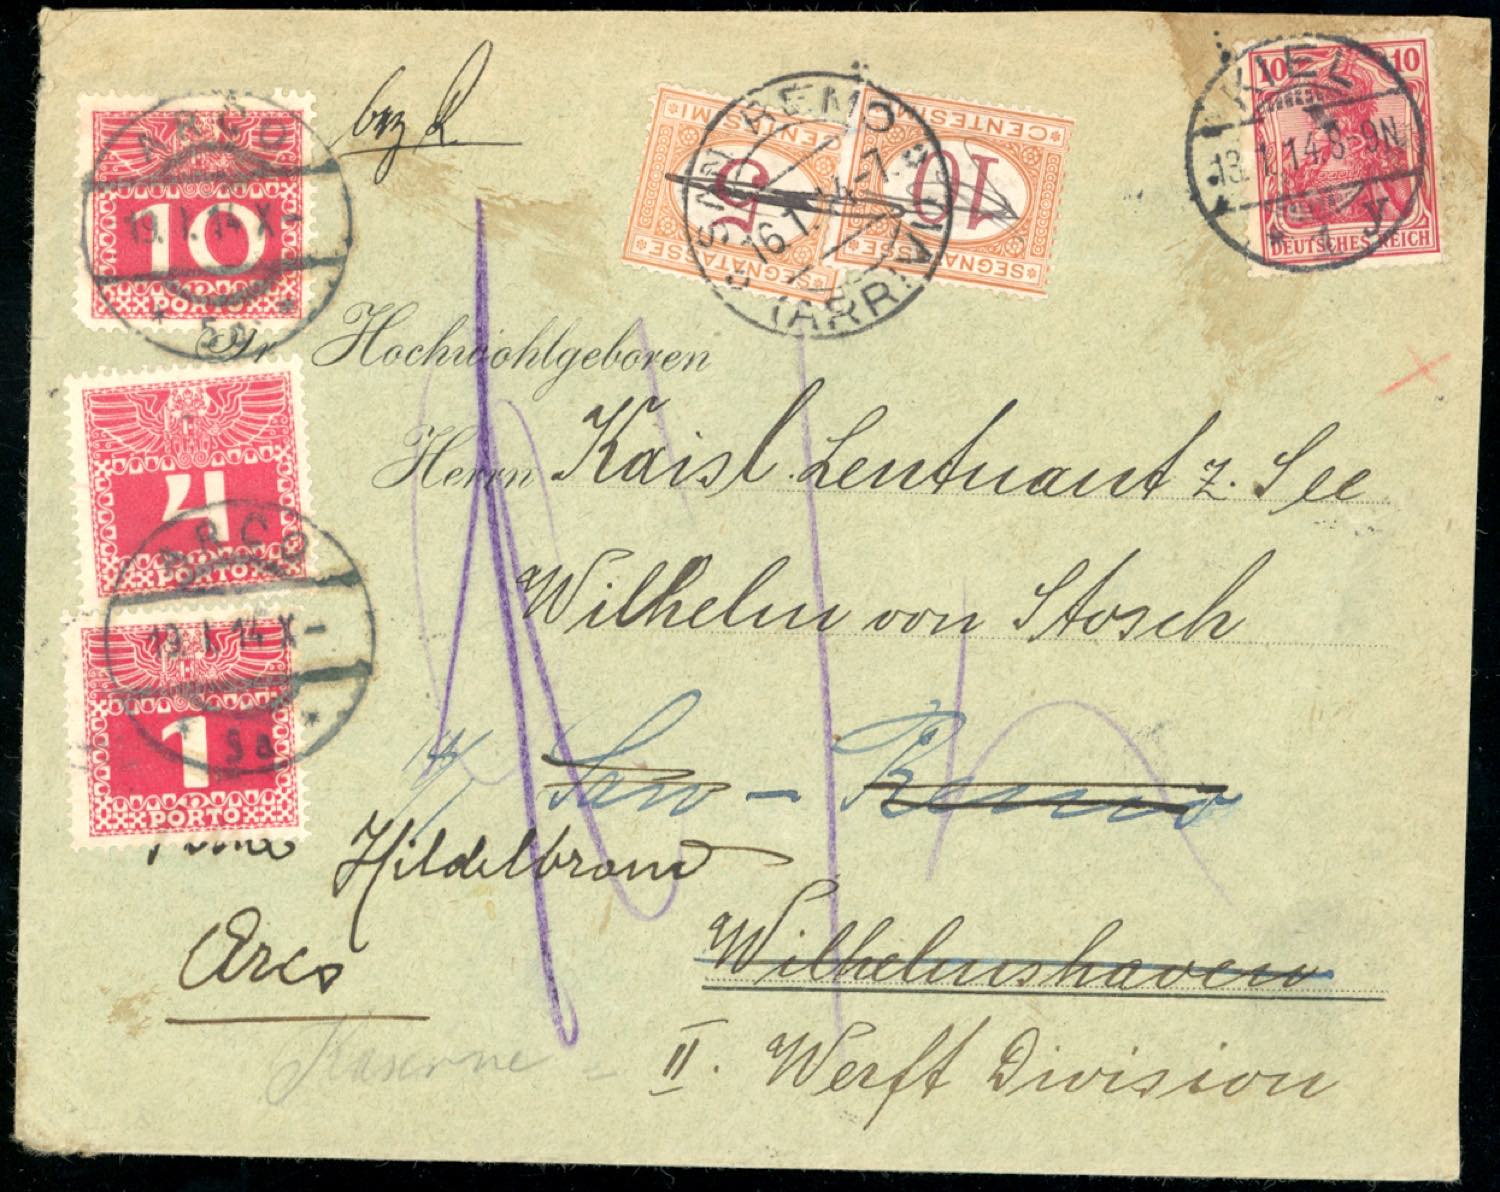 ARCO
19.I.14 X-
5a
10
PORTO
bez
CENTESIMI
5
SEGNATASSE
CENTESIMI
10
SEGNATASSE
SAN REMO
16.1.14-7.S
(ARRI
KIEL
13.1.14.8-9N
* 1 y
10 10
DEUTSCHES REICH
Sr Hochwohlgeboren
Herrn Kaisl. Lentnant z. See
Wilhelm von Stosch
San-Remo
4
PORTO
ARCO
19.I.14 X-
5a
1
PORTO
Hildelbrand
Arco
Wilhelmshaven
Kaserne
II. Werft Division